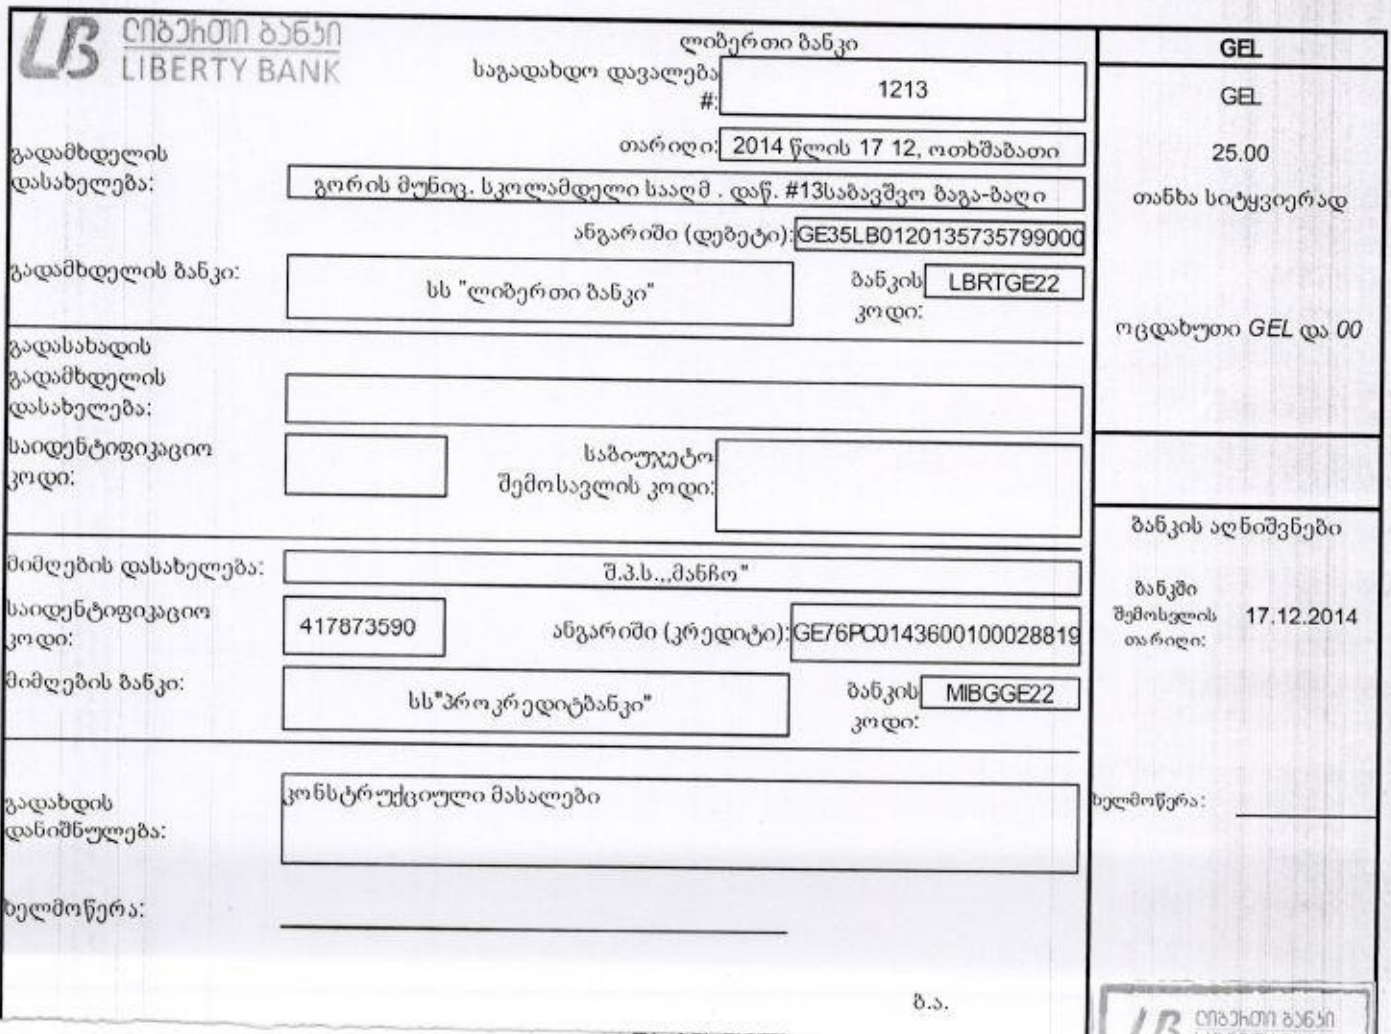 LB ლიბერთი ბანკი
LIBERTY BANK
ლიბერთი ბანკი
საგადახდო დავალება
#: 1213
თარიღი: 2014 წლის 17 12, ოთხშაბათი
გადამხდელის
დასახელება: გორის მუნიც. სკოლამდელი სააღმ . დაწ. #13საბავშვო ბაგა-ბაღი
ანგარიში (დებეტი): GE35LB0120135735799000
გადამხდელის ბანკი: სს "ლიბერთი ბანკი" ბანკის კოდი: LBRTGE22
გადასახადის
გადამხდელის
დასახელება:
საიდენტიფიკაციო
კოდი:
საბიუჯეტო
შემოსავლის კოდი:
მიმღების დასახელება: შ.პ.ს.,,მანჩო"
საიდენტიფიკაციო
კოდი: 417873590
ანგარიში (კრედიტი): GE76PC0143600100028819
მიმღების ბანკი: სს"პროკრედიტბანკი" ბანკის კოდი: MIBGGE22
გადახდის
დანიშნულება: კონსტრუქციული მასალები
ხელმოწერა:
ბ.ა.
GEL
GEL
25.00
თანხა სიტყვიერად
ოცდახუთი GEL და 00
ბანკის აღნიშვნები
ბანკში
შემოსვლის
თარიღი: 17.12.2014
ხელმოწერა:
LB ლიბერთი ბანკი